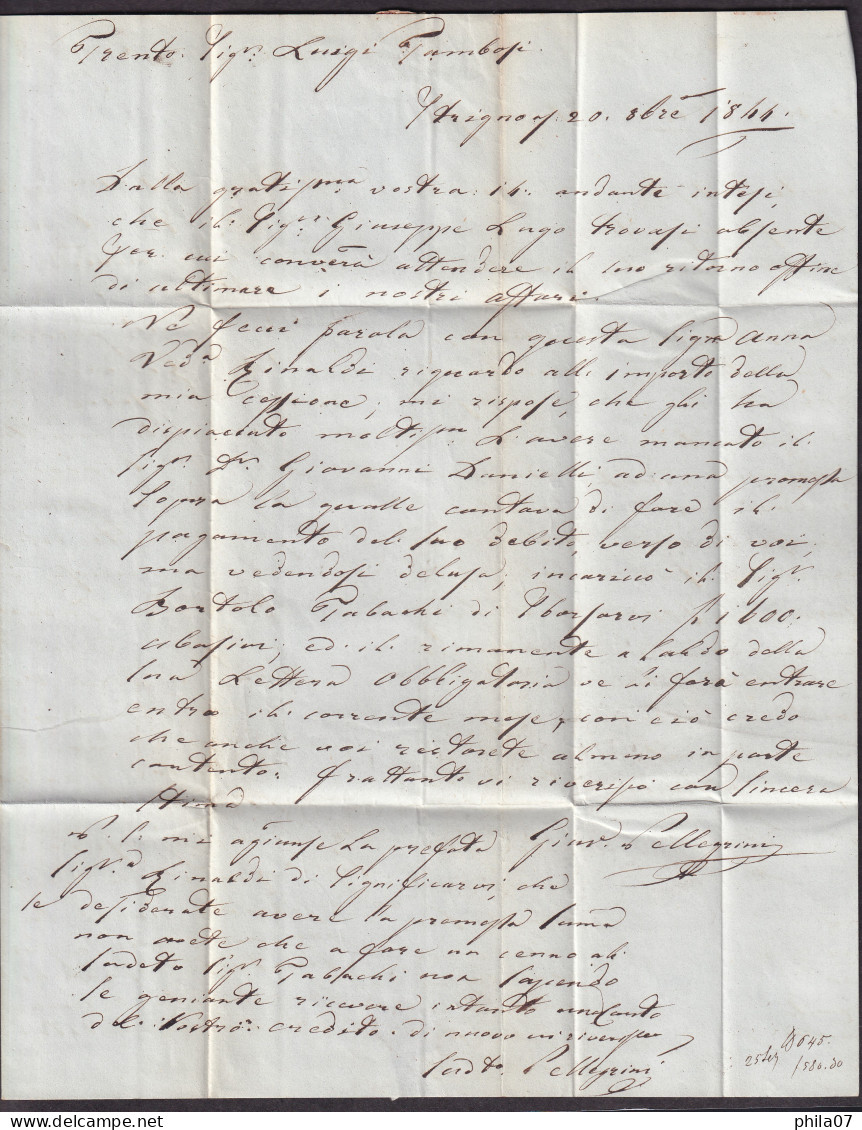 Trento. Sigr. Luigi Tambosi.
Strigno 20. 8bre 1844.
Dalla gratissma vostra 14. andante intesi,
che il Sigr. Giuseppe Lugo trovasi absente
per cui converrà attendere il suo ritorno affine
di ultimare i nostri affari.
Ne feci parola con questa Signa Anna
Veda Rinaldi riguardo all importo della
mia Cessione, mi rispose, che gli ha
dispiaciuto moltissmo l'avere mancato il
Sigr. Dr. Giovanni Danielli, ad una promessa
sopra la qualle contava di fare il
pagamento del suo debito, verso di voi,
ma vedendosi delusa, incaricò il Sigr.
Bortolo Tabachi di sborsarvi f 1600.
abusivi, ed il rimanente a saldo della
sua Lettera Obbligatoria ve lì farà entrare
entro il corrente mese, con ciò credo
che anche voi resterete almeno in parte
contento. Frattanto vi riverisco con sincera
stima
Giuse. Pellegrini
P. S. mi agiunse la prefata
Sigra. Rinaldi di significarvi, che
se desiderate avere la promessa suma
non avete che a fare un cenno al
sudeto Sigr. Tabachi non sapendo
se geniate ricevere intanto
del Vostro credito. di nuovo vi riverisco
sudto. Pellegrini
8645.
25 Ley /580.30
phila07